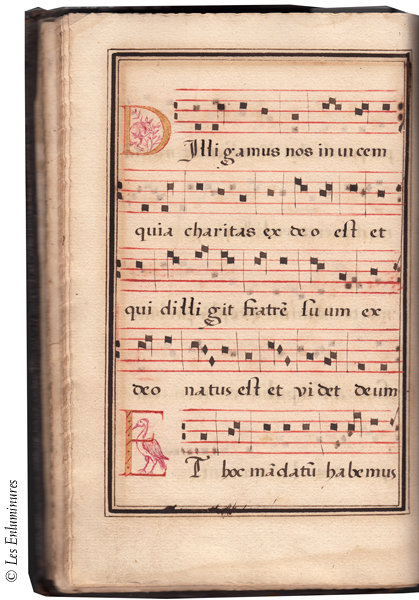 DIlligamus nos in uicem
quia charitas ex deo est et
qui dilligit fratrē suum ex
deo natus est et videt deum
ET hoc mādatū habemus
© Les Enluminures